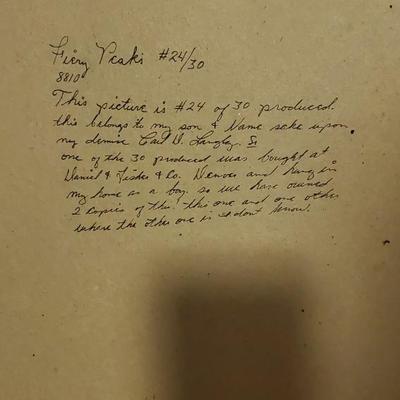 Fiery Peaks #24/30
8810
This picture is #24 of 30 produced.
this belongs to my son & Name sake upon
my demise Carl V. Langley.
one of the 30 produced was bought at
Daniel & Fisher & Co. Denver and hung in
my home as a boy. so we have owned
2 copies of this. this one and one other
where the other one is I dont know.